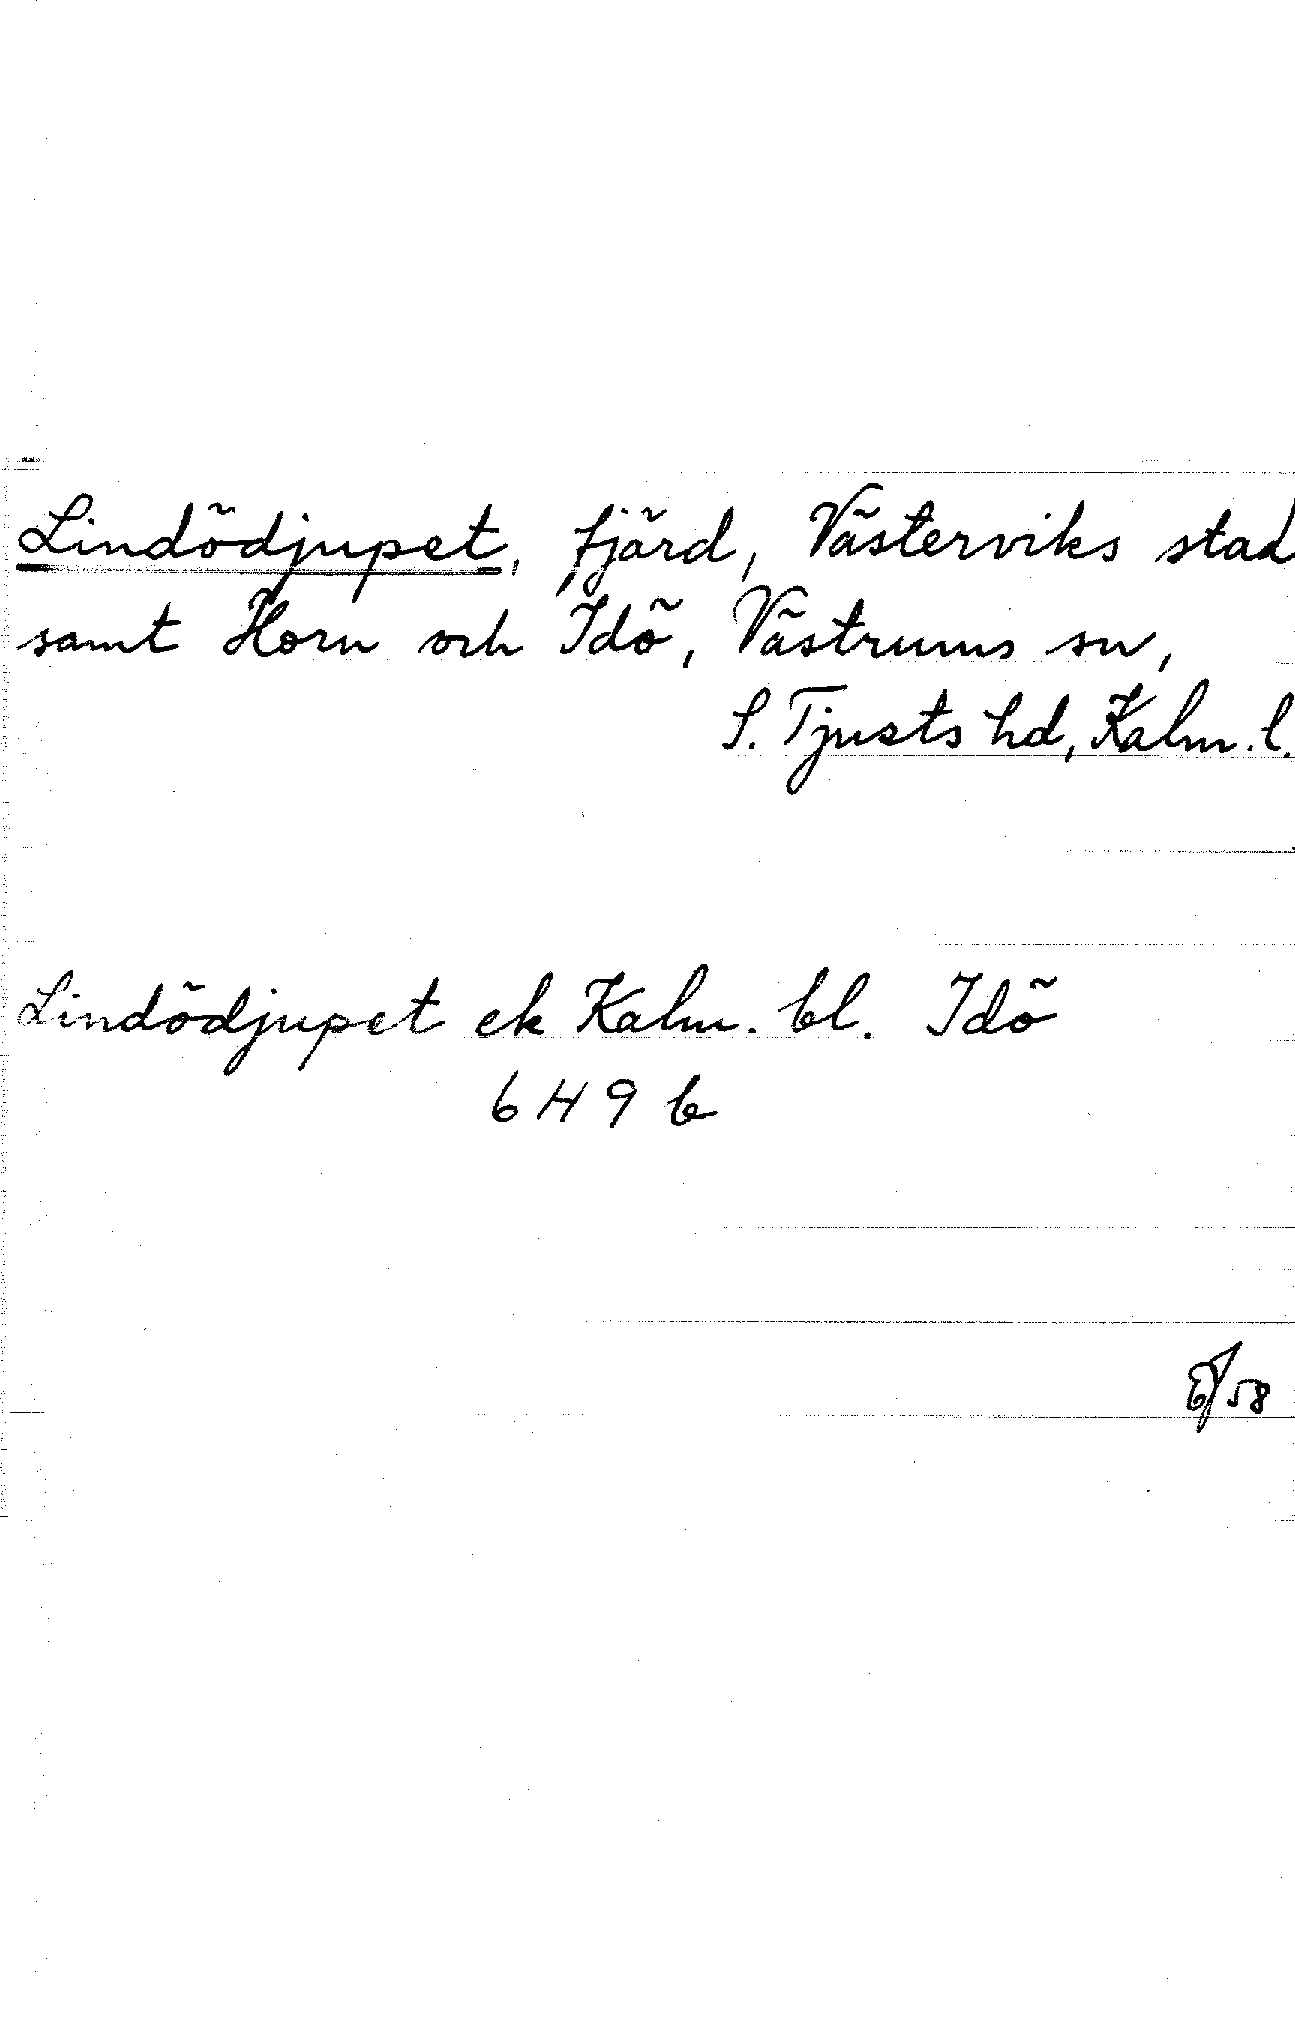 Lindödjupet, fjärd, Västerviks stad
samt Horn och Idö, Västrums sn,
S. Tjusts hd, Kalm. l.
Lindödjupet ek Kalm. bl. Idö
6 H 9 b
/58